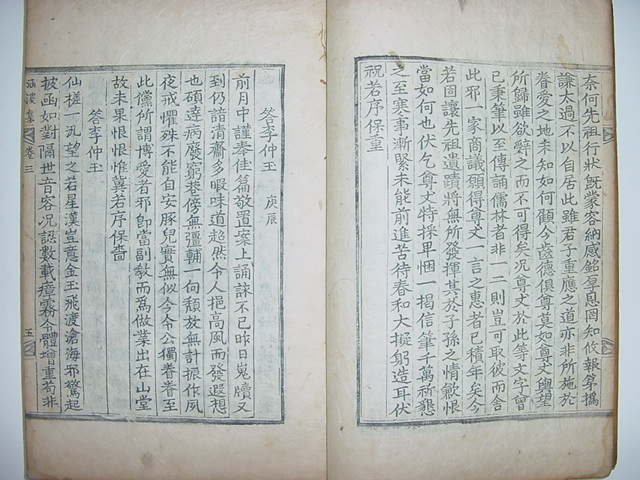 奈何先祖行狀旣蒙容納感銘厚恩罔知攸報第撝
謙太過不以自居此雖君子重應之道亦非所施於
眷愛之地未知如何顧今齒德俱尊莫如尊丈輿望
所歸雖欲辭之而不可得矣况尊丈於此等文字會
已秉筆以至傳誦儒林者非一二則豈可取彼而舍
此耶一家商議願得尊丈一言之惠者已積年矣今
若固讓先祖遺蹟將無所發揮其於子孫之情歉恨
當如何也伏乞尊丈特採卑悃一揭信筆千萬祈懇
之至寒事漸緊未能前進苦待春和大擬躬造耳伏
祝若序保重
答李仲王 庚辰
前月中謹奉佳篇敬置案上誦詠不已昨日嵬牘又
到仍諳淸齋多暇味道超然令人挹高風而發遐想
也碩達病廢窮巷傍無彊輔一向頹放無計振作夙
夜戒懼殊不能自安豚兒實無似今令公獨眷眷至
此儻所謂博愛者耶卽當副敎而爲做業出在山堂
故未果恨恨惟冀若序保嗇
答李仲王
仙槎一別望之若星漢豈意金玉飛渡滄海耶驚起
披函如對隔世音容况認數載瘴霧令體增重苟非
卷三
五